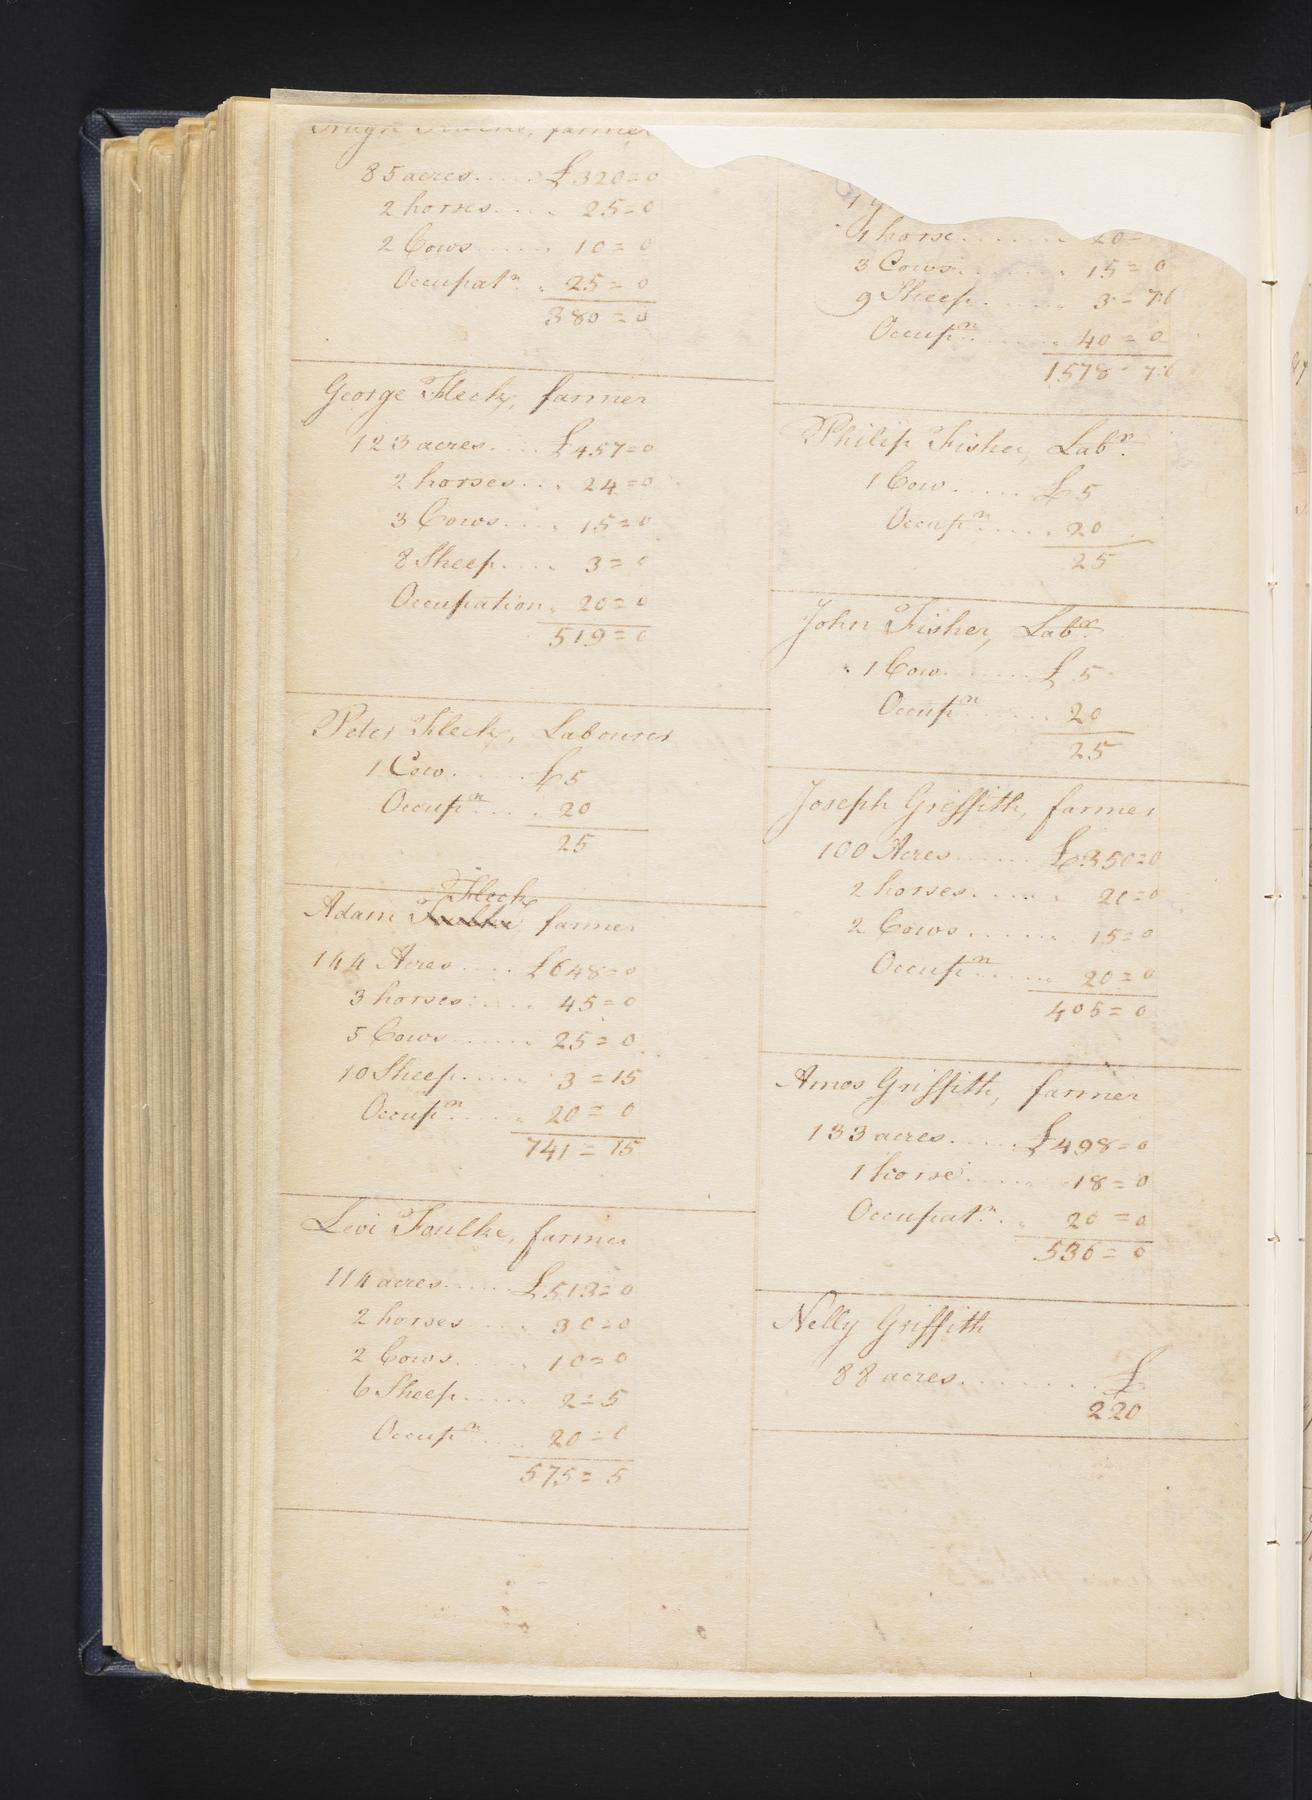 farmer
85 acres..... £320=0
2 horses.... 25=0
2 Cows...... 10=0
Occupatn.. 25=0
380=0
George Fleck, farmer
123 acres..... £457=0
2 horses... 24=0
3 Cows..... 15=0
8 Sheep.... 3=0
Occupation. 20=0
519=0
Peter Fleck, Labourer
1 Cow...... £5
Occupn.... 20
25
Fleck
Adam farmer
144 Acres.... £648=0
3 horses..... 45=0
5 Cows...... 25=0
10 Sheep..... 3=15
Occupn..... 20=0
741=15
Levi Foulke, farmer
114 acres..... £513=0
2 horses .... 30=0
2 Cows..... 10=0
6 Sheep..... 2=5
Occupn.... 20=0
575=5
horse......
3 Cows....... 15=0
9 Sheep..... 3=7:6
Occupn....... 40=0
1578=7:6
Philip Fisher, Labr.
1 Cow..... £5
Occupn..... 20
25
John Fisher, Labr.
1 Cow...... £5
Occupn...... 20
25
Joseph Griffith, farmer
100 Acres...... £350=0
2 horses..... 20=0
2 Cows...... 15=0
Occupn...... 20=0
405=0
Amos Griffith, farmer
133 acres..... £498=0
1 horse..... 18=0
Occupatn... 20=0
536=0
Nelly Griffith
88 acres........ £
220